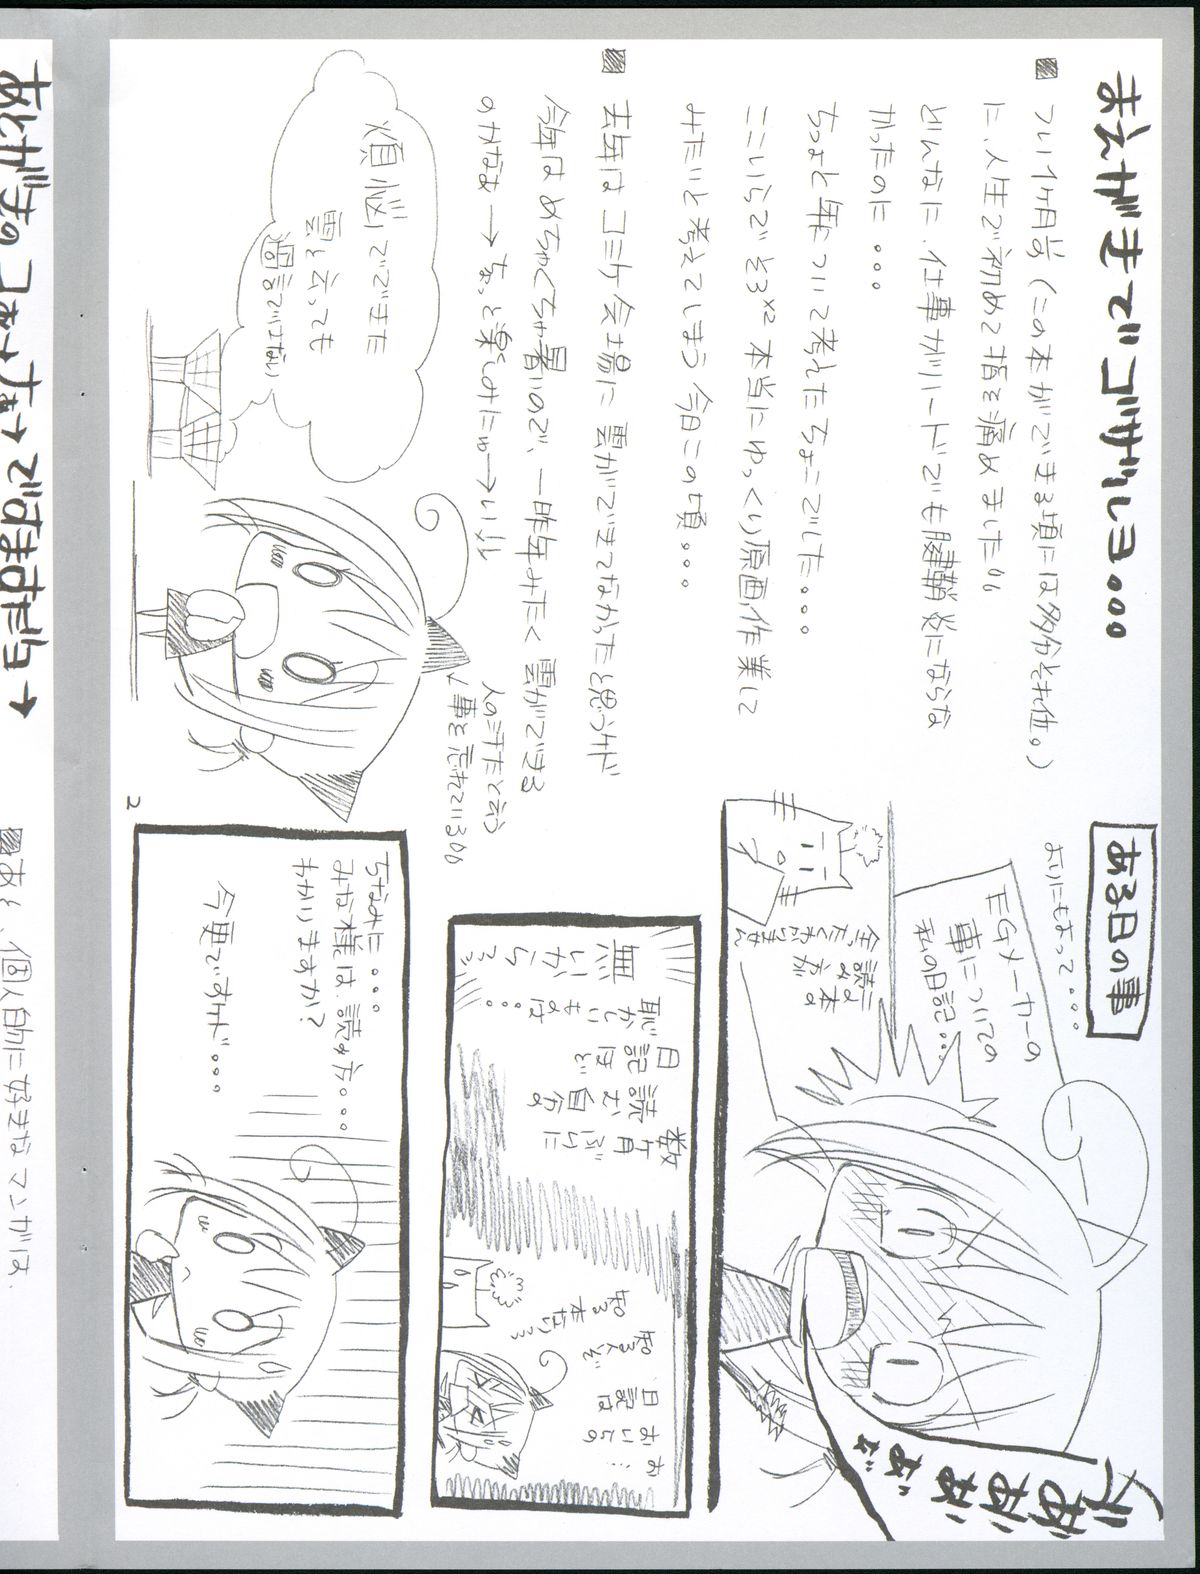 まえがきでゴザルヨ。。。
つい1ヶ月半（この本ができる頃には多分それ位。）
に、人生で初めて指を痛めました
どんなに、仕事がハードでも腱鞘炎にならな
かったのに・・・
ちょと年について考えたちょこでした・・・。
ここいらでそろ×2 本当にゆっくり原画作業して
みたいと考えてしまう今日この頃・・・・
去年はコミケ会場に雲ができてなかったと思うケド
今年はめちゃくちゃ暑いので、一昨年みたく雲ができる
のかなぁ→ちょっと楽しみにゅ→
煩悩でできた
雲と言っても
過言ではない
人の汗だと言う
事を忘れている
2
ある日の事
おりにもよって・・・・
EGメーカーの
事についての
私の日記・・・
本の
読み方が
全ったくわかりません
ずがあああぁぁ
数年ぶりに
読む自分の
日記ほど
恥かしいものは
無いから
お・・・
おいらの
日記は
ちなみに・・・・
みな様は、読み方・・・
わかりますか？
今更ですけど・・・・
■あと、個人的に好きなマンガは、